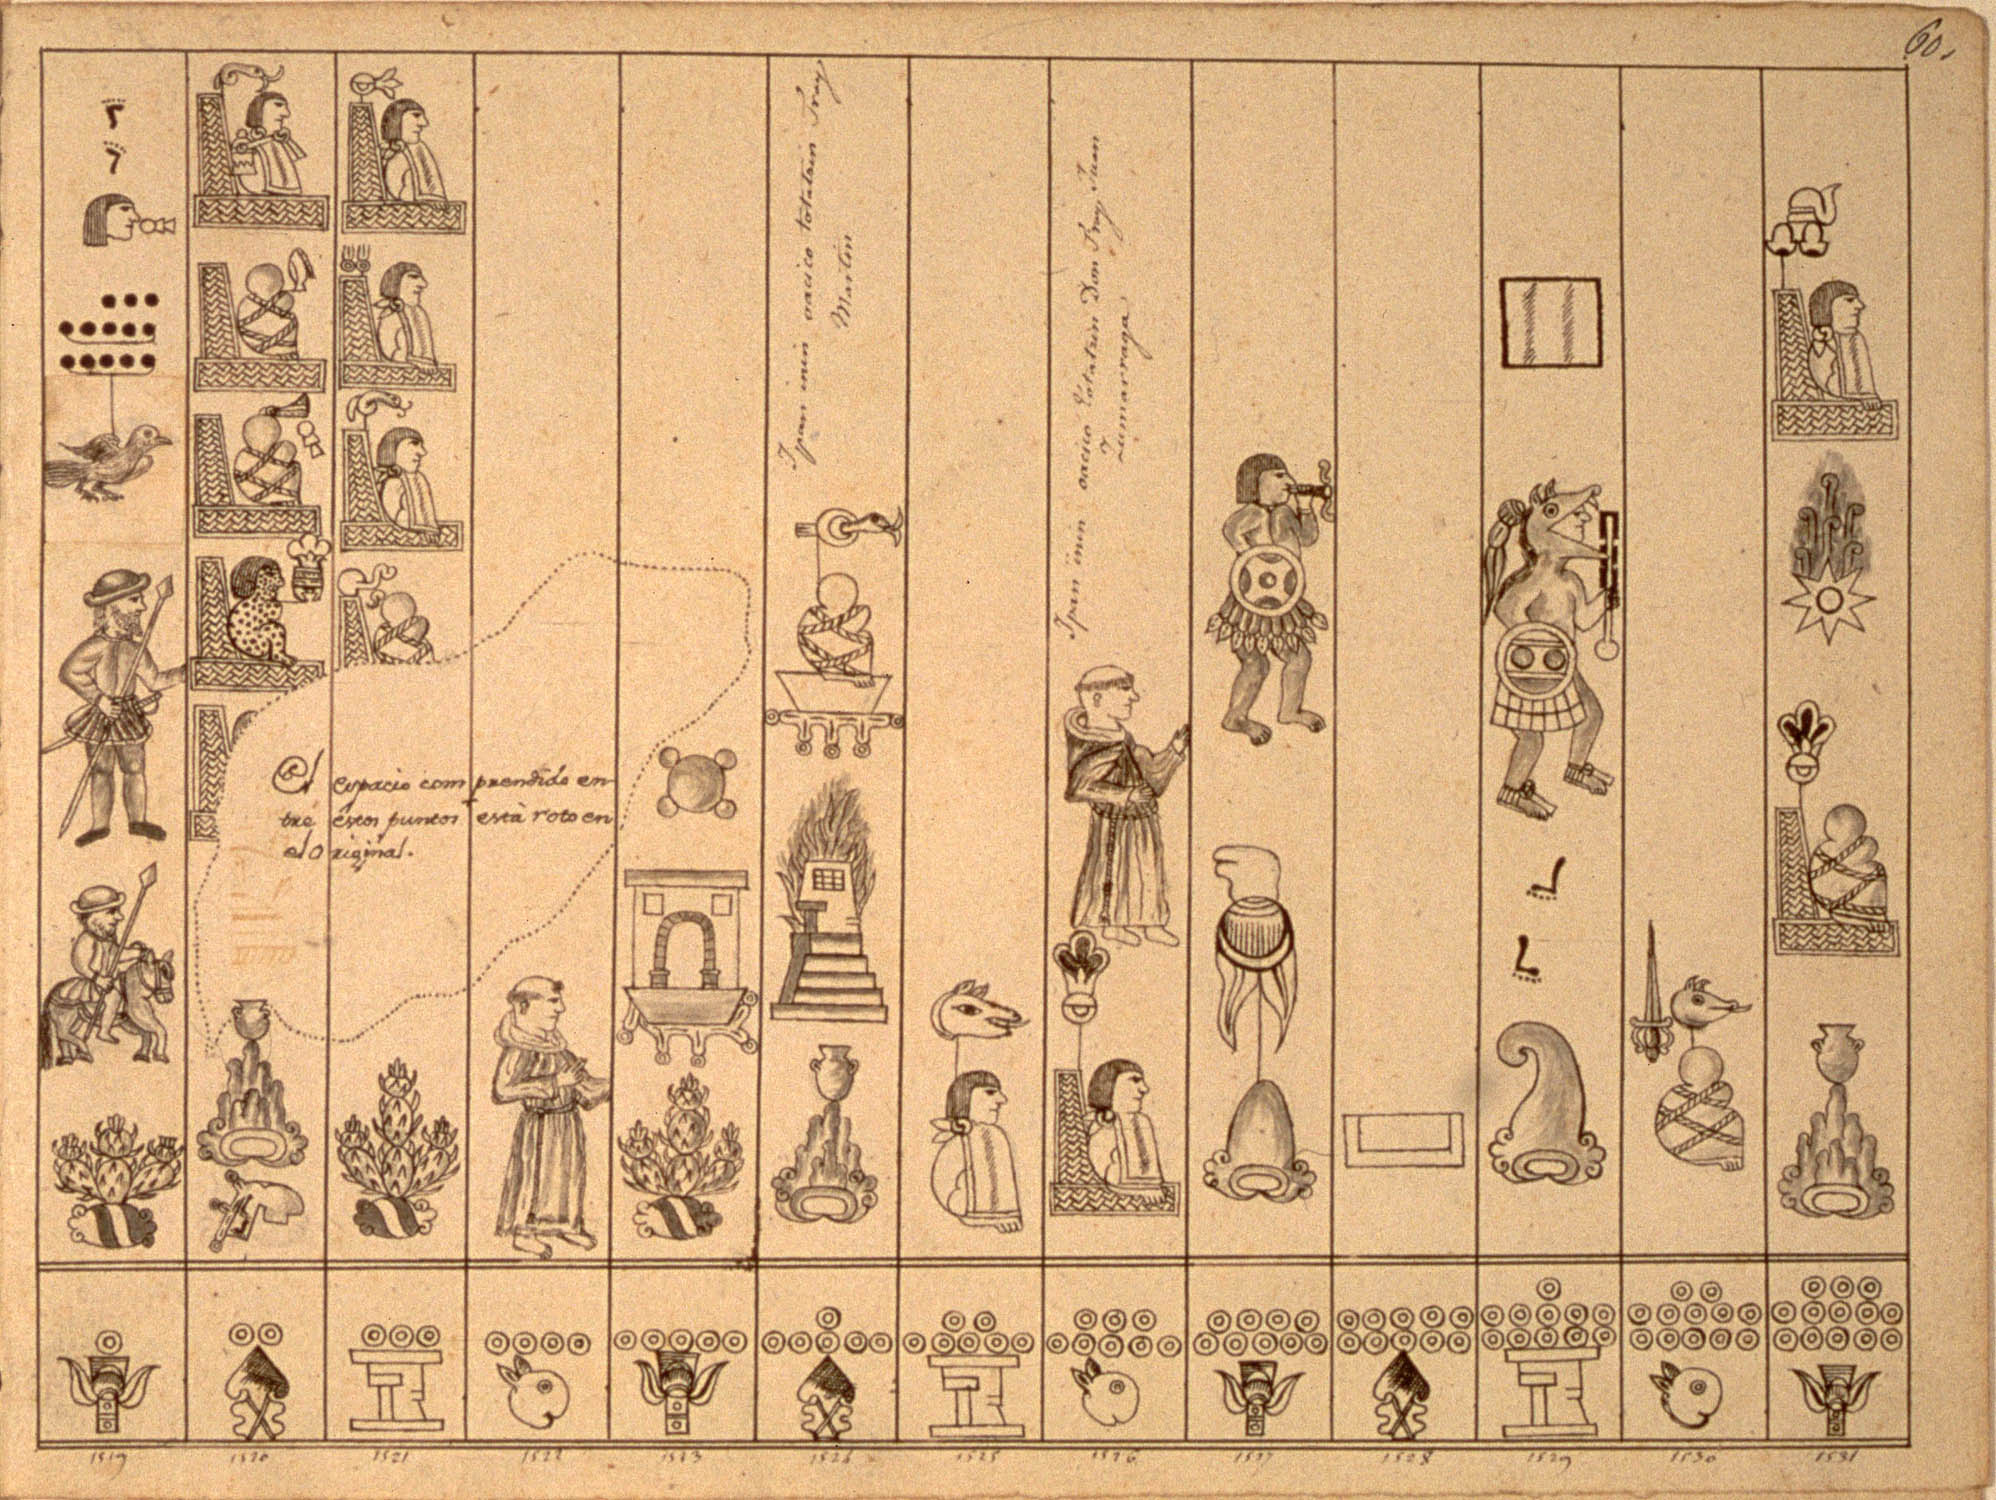 60.
Ipan inin oacico totatzin Fray
Martin
Ipan inin oacico totatzin Don Fray Juan
Zumarraga
El espacio comprendido en-
tre éstos puntos está roto en
el Original.
1519 1520 1521 1522 1523 1524 1525 1526 1527 1528 1529 1530 1531